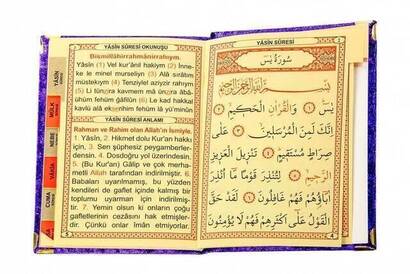 YÂSÎN SÛRESİ OKUNUŞU
Bismillâhirrahmânirrahıym.
Yâsîn (1) Vel kur'ânil hakiym (2) İnne-
ke le minel murseliyn (3) Alâ sırâtım
müstekıym (4) Tenziylel aziyzirrahıym
(5) Li tünzira kavmem mâ ünzira âbâü-
hüm fehüm ğâfilûn (6) Le kad hakkal
kavlü alâ ekserihim fehüm lâ yü'minûn
YÂSÎN SÛRESİ ANLAMI
Rahman ve Rahim olan Allah'ın İsmiyle.
1. Yâsîn, 2. Hikmet dolu Kur'an hak-
kı için, 3. Sen şüphesiz peygamberler-
densin. 4. Dosdoğru yol üzerindesin.
5. (Bu Kur'an) Gâlip ve çok merha-
metli Allah tarafından indirilmiştir. 6.
Babaları uyarılmamış, bu yüzden
kendileri de gaflet içinde kalmış bir
toplumu uyarman için indirilmiş-
tir. 7. Yemin olsun ki onların çoğu
gafletlerinin cezasını hak etmişler-
dir. Çünkü onlar îman etmiyorlar.
YÂSÎN
MÜLK
NEBE
VÂKIA
CUMA
YÂSÎN SÛRESİ
سُورَةُ يٰسٓ
بِسْمِ اللّٰهِ الرَّحْمٰنِ الرَّحِيمِ
يٰسٓ ﴿١﴾ وَالْقُرْاٰنِ الْحَكِيمِ ﴿٢﴾
اِنَّكَ لَمِنَ الْمُرْسَلِينَ ﴿٣﴾ عَلٰى
صِرَاطٍ مُسْتَقِيمٍ ﴿٤﴾ تَنْزِيلَ الْعَزِيزِ
الرَّحِيمِ ﴿٥﴾ لِتُنْذِرَ قَوْمًا مَٓا اُنْذِرَ
اٰبَٓاؤُهُمْ فَهُمْ غَافِلُونَ ﴿٦﴾ لَقَدْ حَقَّ
الْقَوْلُ عَلٰٓى اَكْثَرِهِمْ فَهُمْ لَا يُؤْمِنُونَ